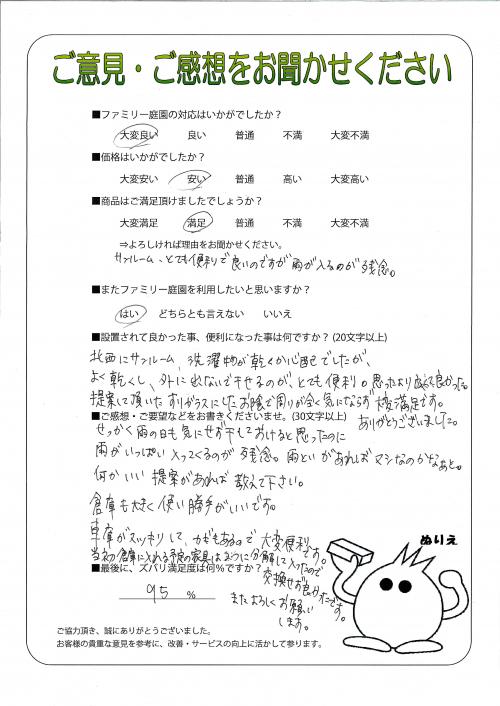 ご意見・ご感想をお聞かせください
■ファミリー庭園の対応はいかがでしたか？
大変良い 良い 普通 不満 大変不満
■価格はいかがでしたか？
大変安い 安い 普通 高い 大変高い
■商品はご満足頂けましたでしょうか？
大変満足 満足 普通 不満 大変不満
⇒よろしければ理由をお聞かせください。
サンルーム、とても便利で良いのですが雨が入るのが残念。
■またファミリー庭園を利用したいと思いますか？
はい どちらとも言えない いいえ
■設置されて良かった事、便利になった事は何ですか？（20文字以上）
北西にサンルーム、洗濯物が乾くか心配でしたが、
よく乾くし、外に出ないで干せるのが、とても便利。思ったより 良かった。
提案して頂いたすりガラスにしたお陰で周りが全く気にならず大変満足です。
ありがとうございました。
■ご感想・ご要望などをお書きくださいませ。（30文字以上）
せっかく雨の日も気にせず干しておけると思ったのに
雨がいっぱい入ってくるのが残念。雨といがあればマシなのかなぁと。
何かいい提案があれば教えて下さい。
倉庫も大きく使い勝手がいいです。
車庫がスッキリして、カギもあるので大変便利です。
当初倉庫に入れる予定の家具は 分解して入ったので
交換せず良かったです。
またよろしくお願い
します。
■最後に、ズバリ満足度は何％ですか？
95 ％
ぬりえ
ご協力頂き、誠にありがとうございました。
お客様の貴重な意見を参考に、改善・サービスの向上に活かして参ります。